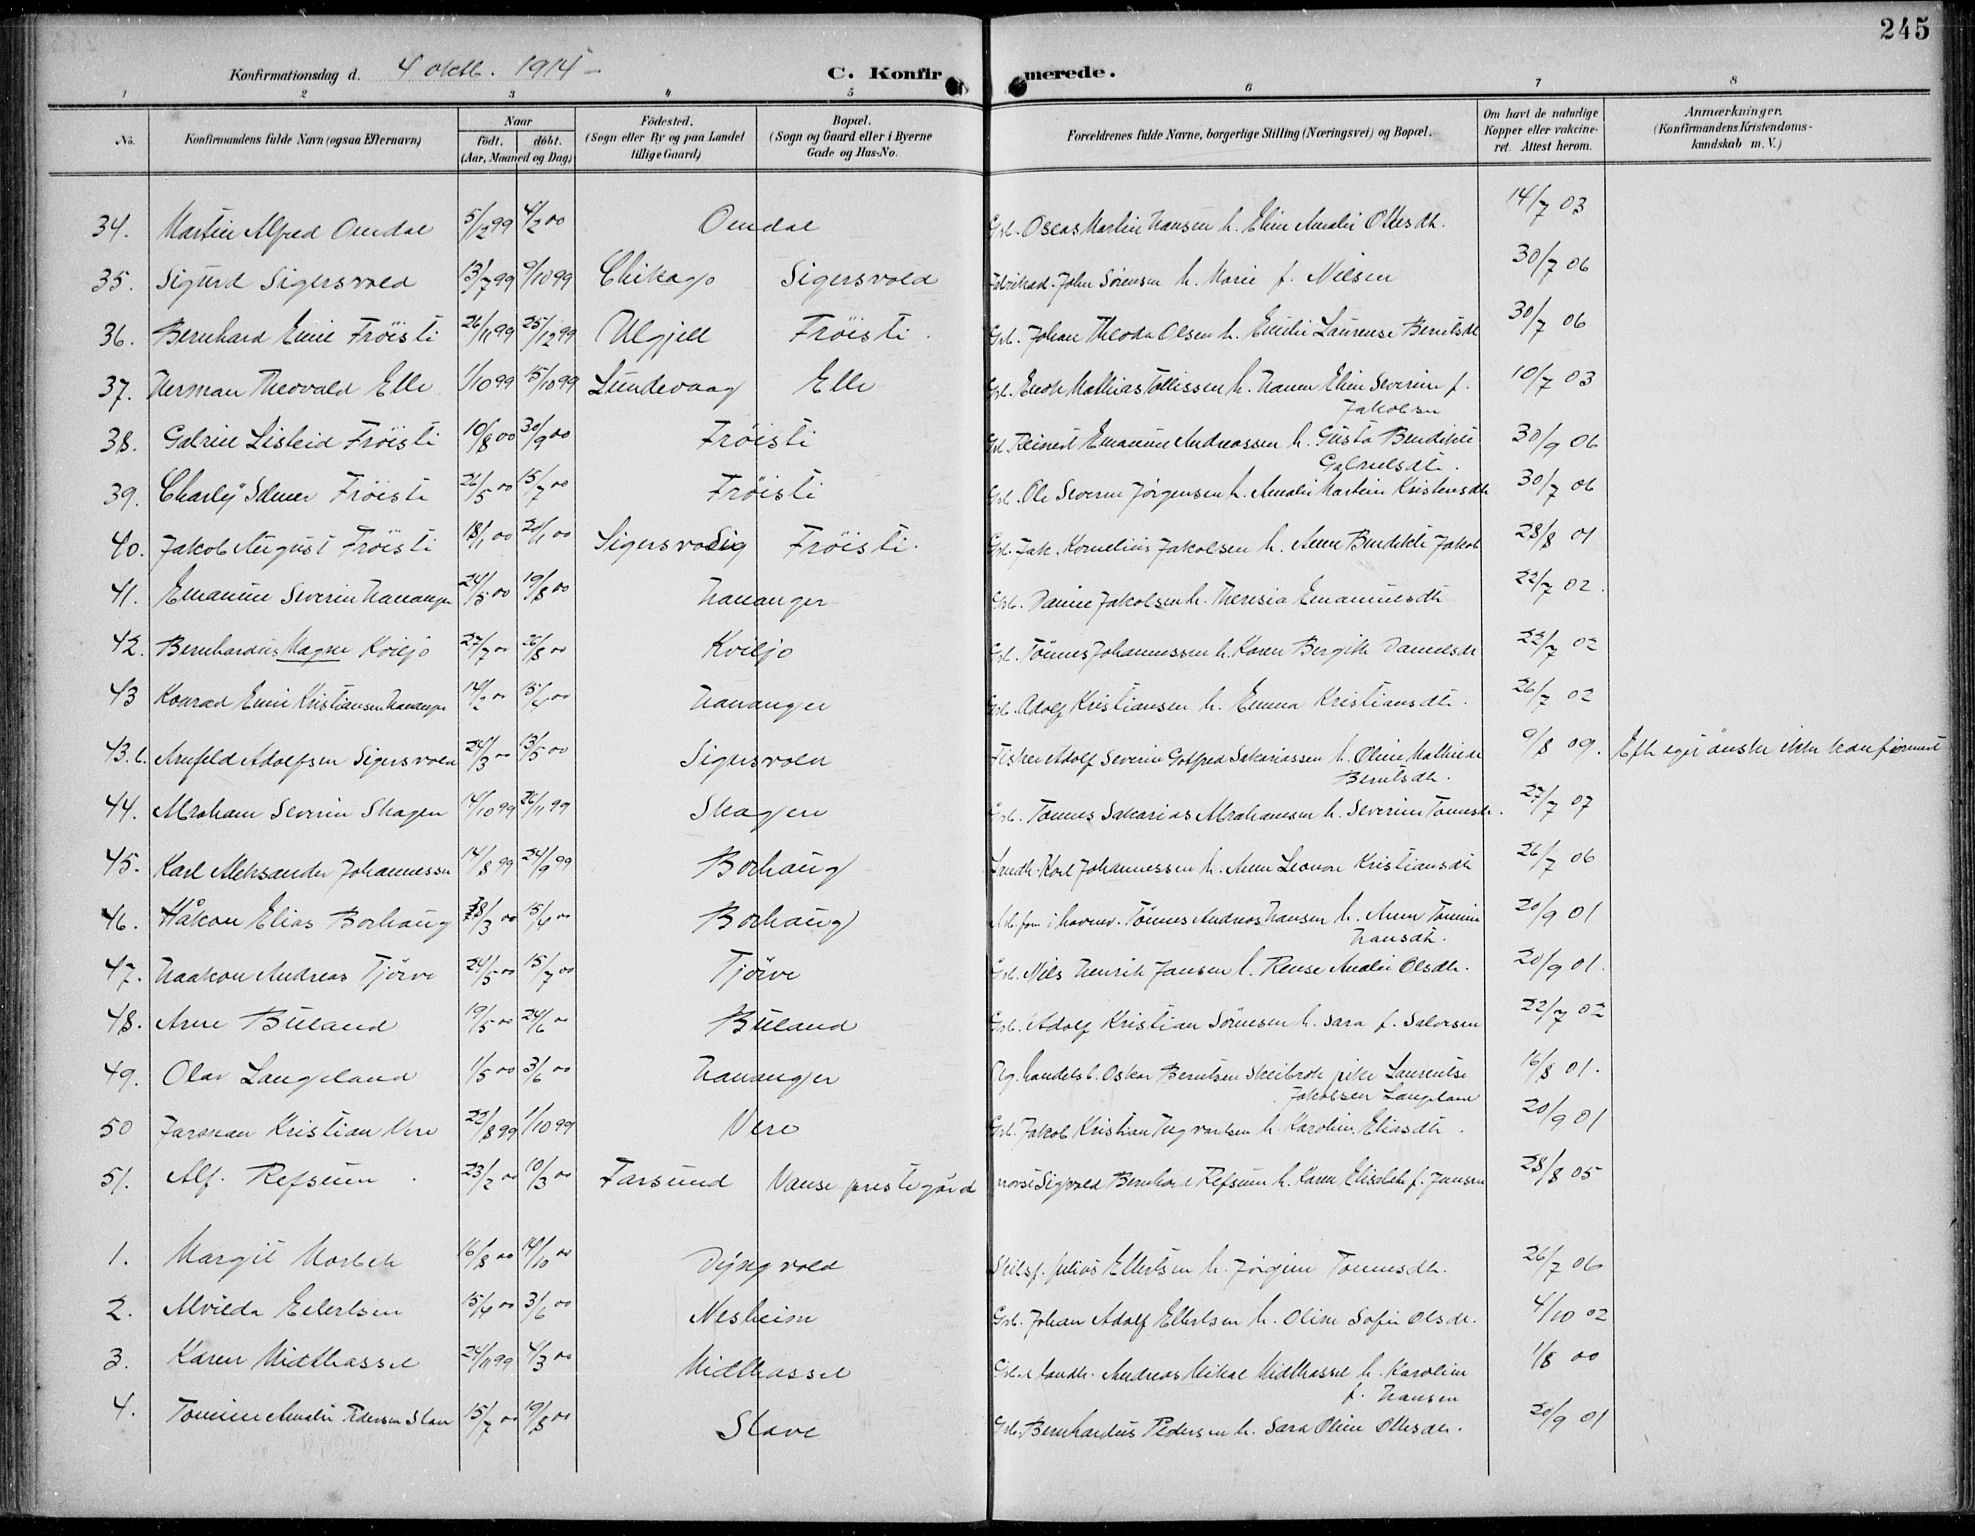 245
Konfirmationsdag d. 4 oktb. 1914 –
C. Konfirmerede.
1 2 3 4 5 6 7 8
No. Konfirmandens fulde Navn (ogsaa Efternavn) Naar født. døbt. (Aar, Maaned og Dag) Födested. (Sogn eller By og paa Landet tillige Gaard) Bopæl. (Sogn og Gaard eller i Byerne Gade og Hus-No. Forældrenes fulde Navne, borgerlige Stilling (Næringsvei) og Bopæl. Om havt de naturlige Kopper eller vakcineret. Attest herom. Anmærkninger. (Konfirmandens Kristendomskundskab m. V.)
34. Martin Alfred Omdal 5/12 99 4/2 00 Omdal Grb. Oseas Martin Hansen h. Eline Amalie Ottesdt. 14/7 03
35. Sigurd Sigersvold 13/7 99 9/10 99 Chikago Sigersvold Fabrikad. John Sørensen h. Marie f. Nilsen 30/7 06
36. Bernhard Emil Fröisti 26/11 99 25/12 99 Ulgjell Fröisti. Grb. Johan Theodor Olsen h. Emilie Laurense Berntsdt 30/7 06
37. Herman Theovald Elle 1/10 99 15/10 99 Lundevaag Elle Grb. Enok Mathias Tollissen h. Hanna Eline Severine f. Jakobsen 10/7 03
38. Gabriel Lisleid Fröisti 10/8 00 30/9 00 Fröisti Grb. Reinert Emanuel Andreassen h. Gusta Bendikte Gabrielsdt. 30/9 06
39. Charley Selmer Fröisti 26/5 00 15/7 00 Fröisti Grb. Ole Severin Jørgensen h. Amalie Martine Kristensdt 30/7 06
40. Jakob August Fröisti 18/1 00 20/1 00 Sigersvold Fröisti. Grb. Jak. Kornelius Jakobsen h. Anne Bendikte Jakob 28/8 01
41. Emanuel Severin Hananger 24/5 00 19/8 00 Hananger Grb. Daniel Jakobsen h. Theresia Emanuelsdt 22/7 02.
42. Bernhardus Magne Kviljo 27/7 00 26/8 00 Kviljo Grb. Tönnes Johannessen h. Karen Bergitte Danielsdt 22/7 02
43 Konrad Emil Kristiansen Hananger 14/2 00 15/4 00 Hananger Grb. Adolf Kristiansen h. Emma Kristiansdt. 26/7 02
43.b. Arnfeld Adolfsen Sigersvold 24/3 00 13/5 00 Sigersvold Fisker Adolf Severin Gotfred Sakariassen h. Oline Mathilde Berntsdt. 9/8 09. Efter eget önske ikke konfirmert
44. Abraham Severin Skagen 14/10 99 26/11 99 Skagen Grb. Tönnes Sakarias Abrahamsen h. Severine Tønnesdt. 27/7 07
45. Karl Aleksander Johannessen 14/8 99 24/9 99 Borhaug Landh. Karl Johannessen h. Anne Leonore Kristiansdt 26/7 06
46. Håkon Elias Borhaug 28/3 00 15/4 00 Borhaug Arb.form i havnev. Tönnes Andreas Hansen h. Anne Tomine Hansdt. 20/9 01
47. Haakon Andreas Tjörve 24/5 00 15/7 00 Tjörve Grb. Nils Henrik Jansen h. Rense Amalie Olsdt. 20/9 01.
48. Arne Buland 19/5 00 24/6 00 Buland Grb. Adolf Kristian Sörensen h. Sara f. Salvesen 22/7 02
49. Olav Langeland 1/5 00 3/6 00 Hananger Ug. handelsb. Oskar Berntsen Skeibrok pike Laurentse Jakobsen Langeland 16/8 01.
50 Jarman Kristian Vere 22/8 99 1/10 99 Vere Grb. Jakob Kristian Ingvardsen h. Karoline Eliasdt. 20/9 01
51. Alf. Refsum. 23/2 00 10/3 00 Farsund Vanse prestegård Sigvald Bernhard Refsum h. Karen Elisabeth f. Jansen 28/8 05
1. Margit Morbek 16/8 00 14/10 00 Dyngvold Skibsf. Julius Ellertsen h. Jörgine Tønnesdt. 26/7 06
2. Alvilda Eilertsen 15/4 00 3/6 00 Nesheim Grb. Johan Adolf Ellertsen h. Oline Sofie Olsdt. 4/10 02
3. Karen Midthassel 24/11 99 4/3 00 Midthassel Grb. & landh. Andreas Mikal Midthassel h. Karoline f. Hansen 1/8 00
4. Tomine Amalie Pedersen Stave 15/7 00 19/8 00 Stave Grb. Bernhardus Pedersen h. Sara Oline Ottesdt. 20/9 01